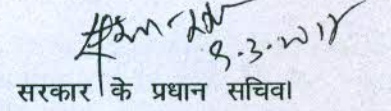 9.3.2018
सरकार के प्रधान सचिव।